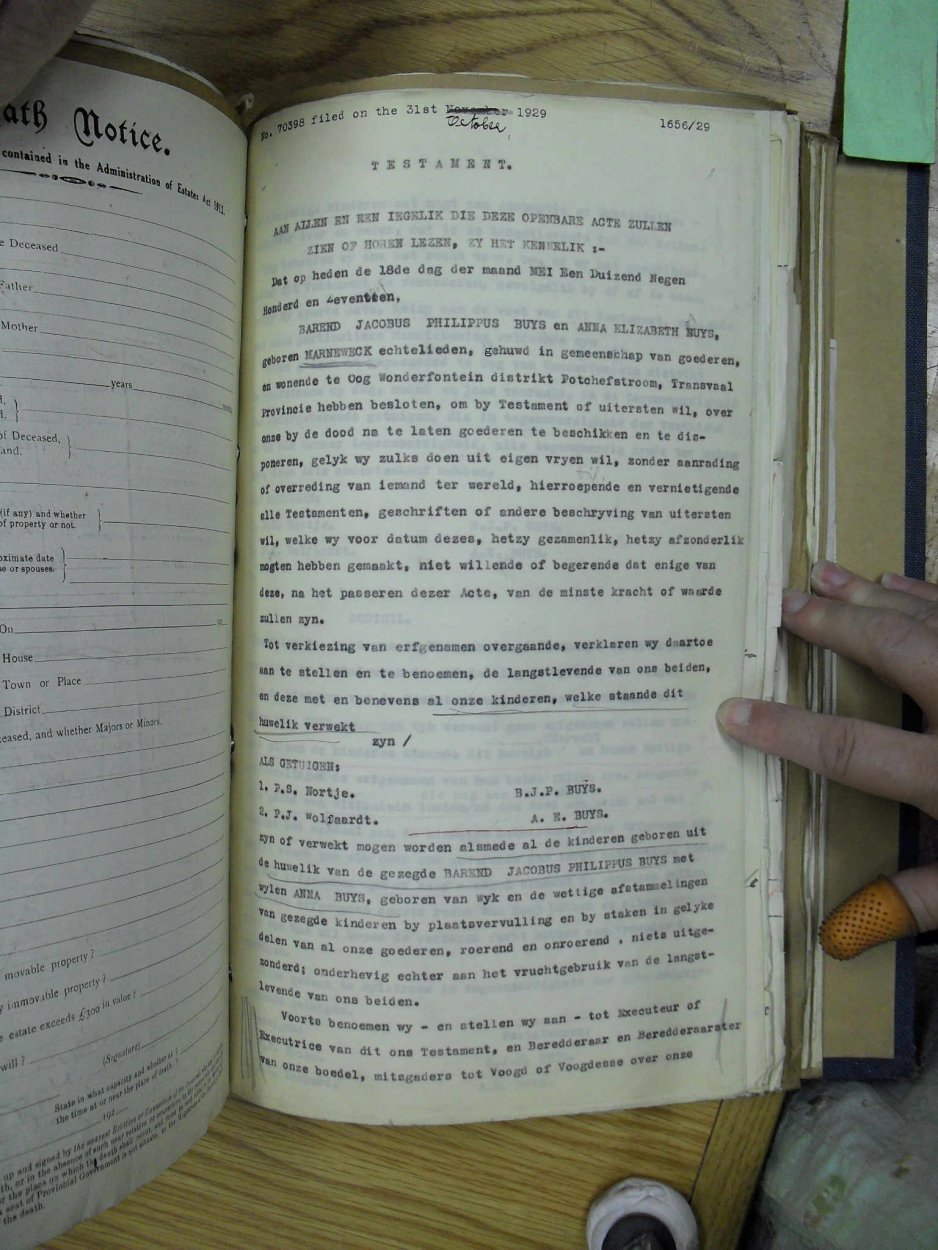 ath Notice.
contained in the Administration of Estates Act 1913.
e Deceased
Father
Mother
years
of Deceased,
and.
(if any) and whether
of property or not.
oximate date
se or spouses.
On
House
Town or Place
District
eased, and whether Majors or Minors.
movable property ?
y immovable property ?
e estate exceeds £300 in value ?
will ?
(Signature)
State in what capacity and whether at
the time at or near the place of death.
192
up and signed by the nearest Relative or Connection of the
th, or in the absence of such near relative or connection, by the
or the place on which the death shall occur, and
a seat of Provincial Government is not situate, to the
the death.
No. 70398 filed on the 31st November 1929
October,
1656/29
TESTAMENT.
AAN ALLEN EN EEN IEGELIK DIE DEZE OPENBARE ACTE ZULLEN
ZIEN OF HOREN LEZEN, ZY HET KENNELIK ;-
Dat op heden de 18de dag der maand MEI Een Duizend Negen
Honderd en Zeventien,
BAREND JACOBUS PHILIPPUS BUYS en ANNA ELIZABETH BUYS,
geboren MARNEWECK echtelieden, gehuwd in gemeenschap van goederen,
en wonende te Oog Wonderfontein distrikt Potchefstroom, Transvaal
Provincie hebben besloten, om by Testament of uitersten wil, over
onze by de dood na te laten goederen te beschikken en te dis-
poneren, gelyk wy zulks doen uit eigen vryen wil, zonder aanrading
of overreding van iemand ter wereld, hierroepende en vernietigende
alle Testamenten, geschriften of andere beschryving van uitersten
wil, welke wy voor datum dezes, hetzy gezamenlik, hetzy afzonderlik
mogten hebben gemaakt, niet willende of begerende dat enige van
deze, na het passeren dezer Acte, van de minste kracht of waarde
zullen zyn.
Tot verkiezing van erfgenamen overgaande, verklaren wy daartoe
aan te stellen en te benoemen, de langstlevende van ons beiden,
en deze met en benevens al onze kinderen, welke staande dit
huwelik verwekt
zyn /
ALS GETUIGEN:
1. P.S. Nortje. B.J.P. BUYS.
2. P.J. Wolfaardt. A. E. BUYS.
zyn of verwekt mogen worden alsmede al de kinderen geboren uit
de huwelik van de gezegde BAREND JACOBUS PHILIPPUS BUYS met
wylen ANNA BUYS, geboren van wyk en de wettige afstammelingen
van gezegde kinderen by plaatsvervulling en by staken in gelyke
delen van al onze goederen, roerend en onroerend , niets uitge-
zonderd; onderhevig echter aan het vruchtgebruik van de langst-
levende van ons beiden.
Voorts benoemen wy - en stellen wy aan - tot Executeur of
Executrice van dit ons Testament, en Beredderaar en Beredderaarster
van onze boedel, mitsgaders tot Voogd of Voogdesse over onze